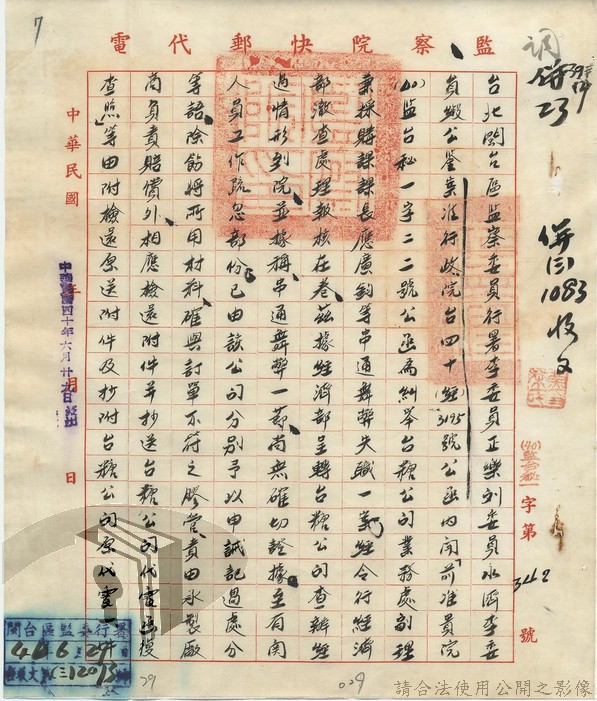 監察院快郵代電
併(三)1083收文
(40)監台秘一字第342號
台北閩台區監察委員行署李委員正樂劉委員永濟李委
員緞公鑒案准行政院台四十(經)3195號公函內開「前准貴院
(40)監台秘一字二二號公函為糾舉台糖公司業務處副理
兼採購課課長應廣鈞等串通舞弊失職一案經令行經濟
部澈查處理報核在卷茲據經濟部呈轉台糖公司查辦經
過情形到院並據稱串通舞弊一節尚無確切證據至有關
人員工作疏忽部份已由該公司分別予以申誡記過處分
等語除飭將所用材料確與訂單不符之膠管責由承製廠
商負責賠償外相應檢還附件并抄送台糖公司代電函復
查照」等由附檢還原送附件及抄附台糖公司原代電
中華民國年月日
中華民國四十年六月廿九日
7
閩台區監委行署
29
009
請合法使用公開之影像